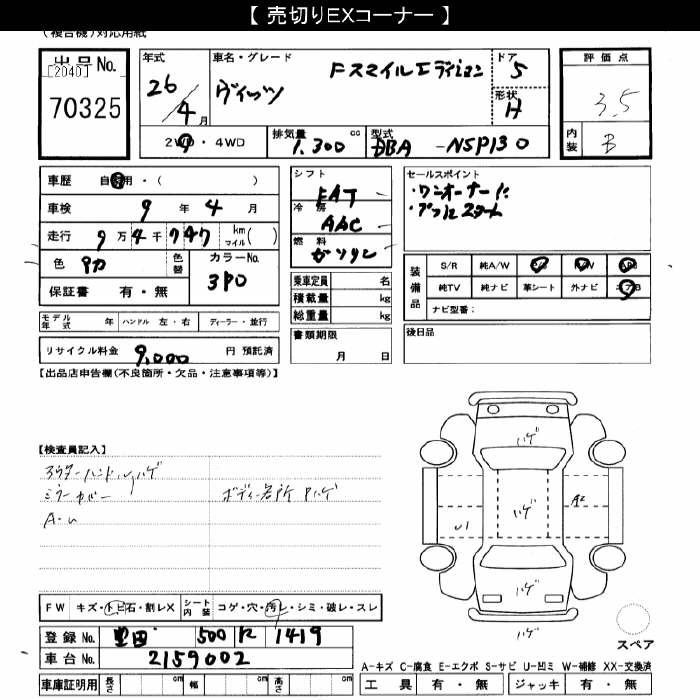 【 売切りEXコーナー 】
(複合機)対応用紙
出品No.
[2040]
70325
年式
26/4月
車名・グレード
ヴィッツ
Fスマイルエディション
ドア
5
形状
H
評価点
3.5
内装
B
2WD・4WD
排気量
1.300 cc
型式
DBA -NSP130
車歴 自家用・( )
車検 9年 4月
走行 9万4千747 km マイル( )
色
色替
カラーNo.
3P0
保証書 有・無
シフト
FAT
冷房
AAC
燃料
ガソリン
乗車定員 名
積載量 kg
総重量 kg
セールスポイント
・ワンオーナー
装備品
S/R 純A/W P/S P/W
純TV 純ナビ 革シート 外ナビ エアB
ナビ型番:
モデル年式 年 ハンドル 左・右 ディーラー・並行
リサイクル料金 9,000 円 預託済
書類期限
月 日
後日品
【出品店申告欄(不良箇所・欠品・注意事項等)】
【検査員記入】
アウターハンドルハゲ
ミラーカバー
A・U
ボディー各所 Pハゲ
ハゲ
ハゲ
ハゲ
ハゲ
U1
A2
スペア
FW キズ・トビ石・割レX
シート内装 コゲ・穴・汚レ・シミ・破レ・スレ
登録No. 豊田 500 に 1419
車台No. 2159002
車庫証明用 長さ cm 幅 cm 高さ cm
A-キズ C-腐食 E-エクボ S-サビ U-凹ミ W-補修 XX-交換済
工具 有・無 ジャッキ 有・無